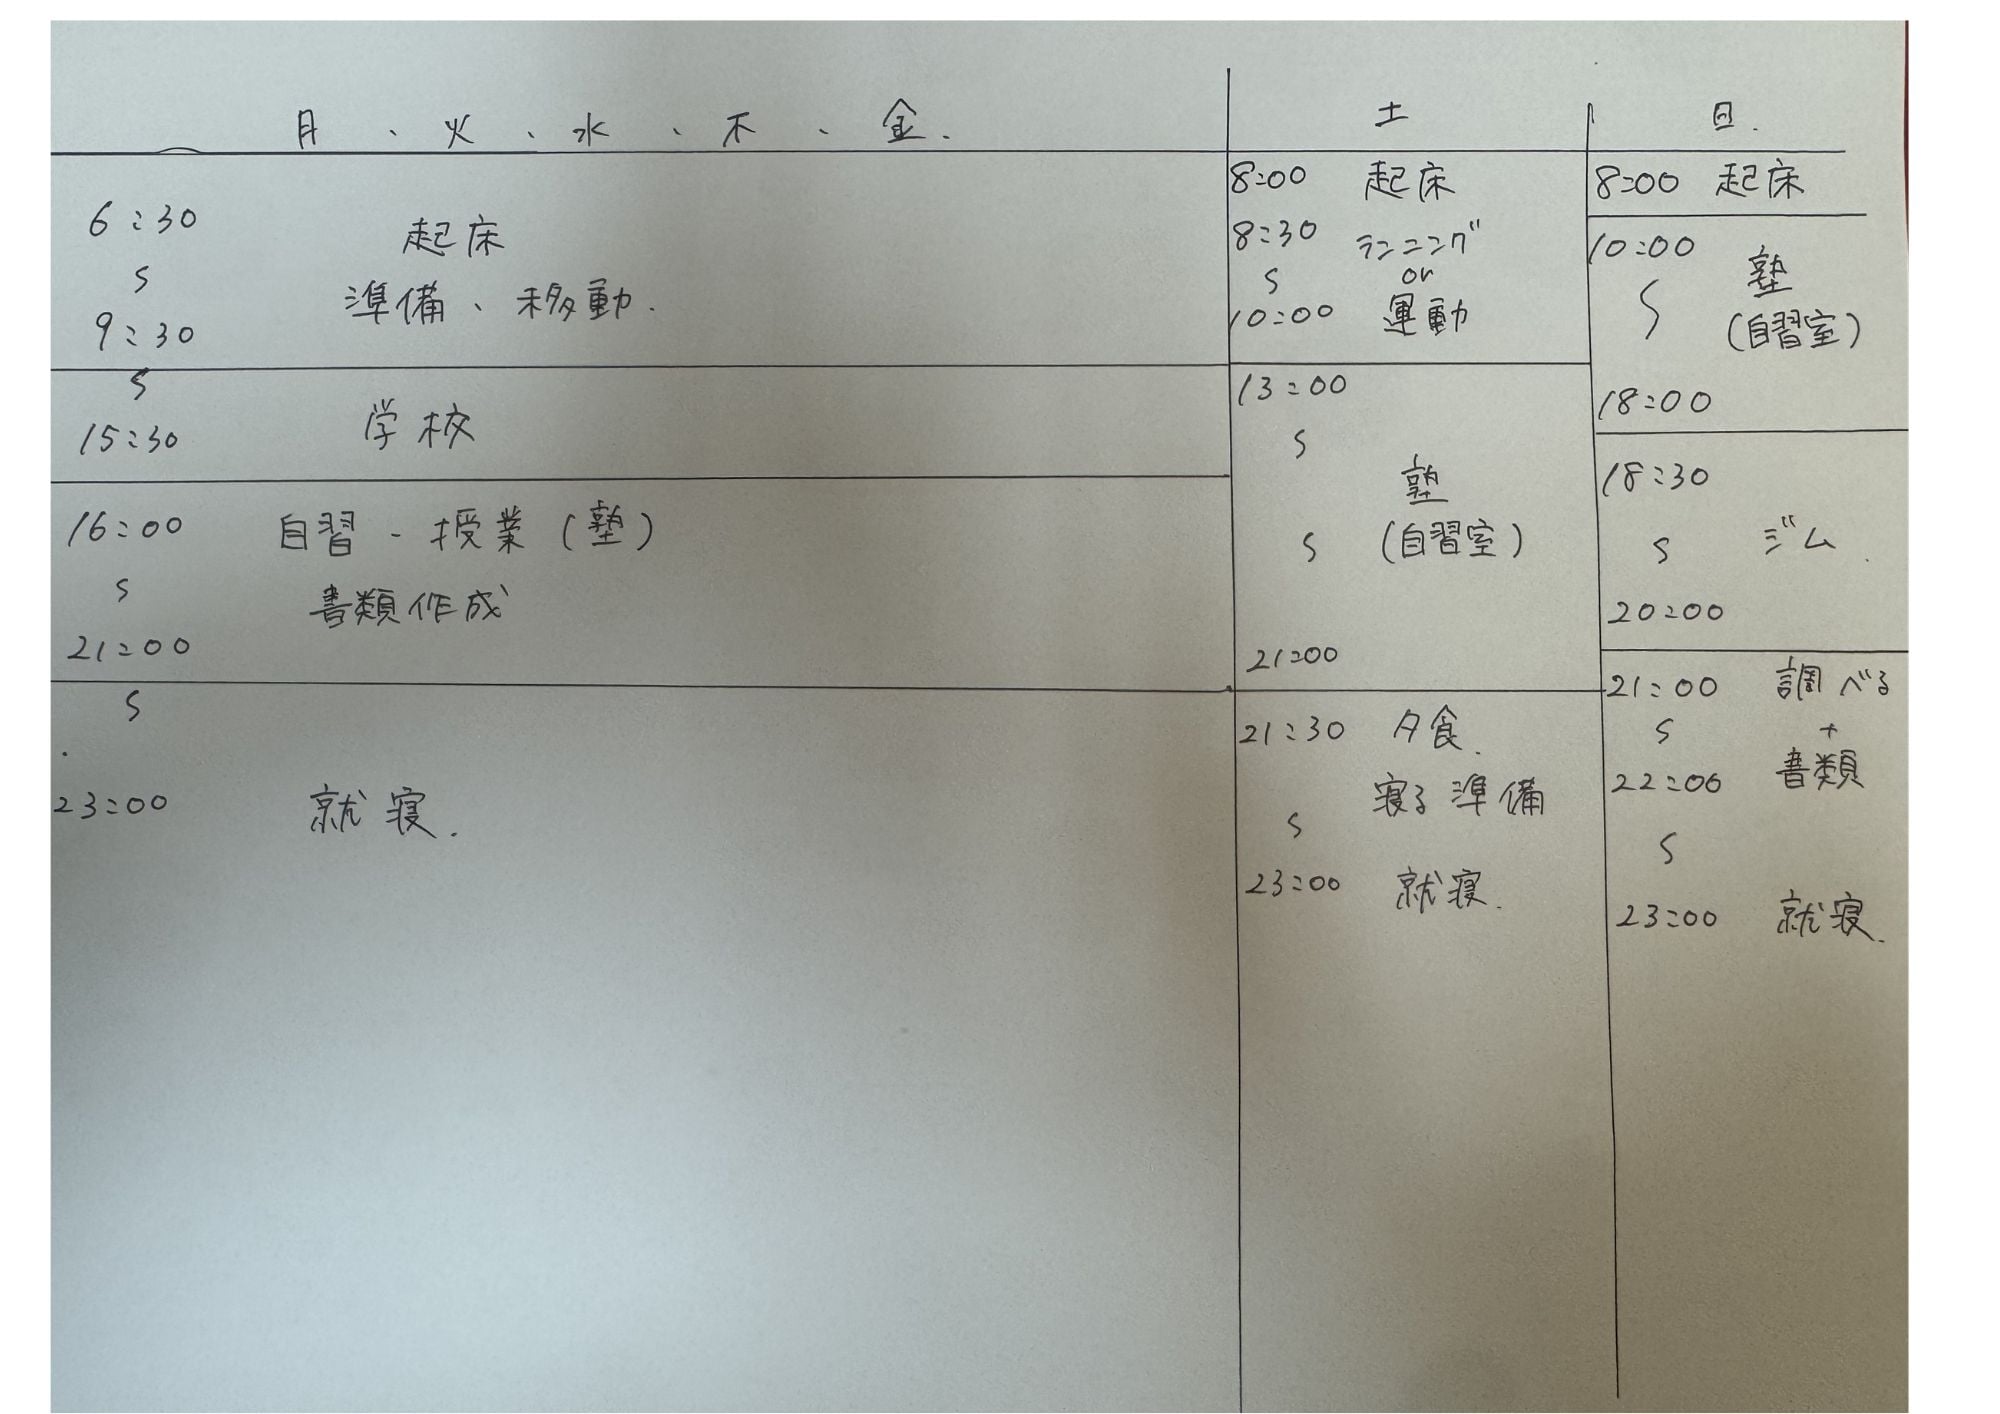 月、火、水、木、金.
6:30
起床
S
準備、移動.
9:30
S
15:30
学校
16:00 自習・授業(塾)
S
書類作成
21:00
S
23:00 就寝.
土
8:00 起床
8:30 ランニング
S or
10:00 運動
13:00
S
塾
S (自習室)
21:00
21:30 夕食.
寝る準備
S
23:00 就寝.
日.
8:00 起床
10:00
塾
S
(自習室)
18:00
18:30
S ジム.
20:00
21:00 調べる
S +
22:00 書類
S
23:00 就寝.